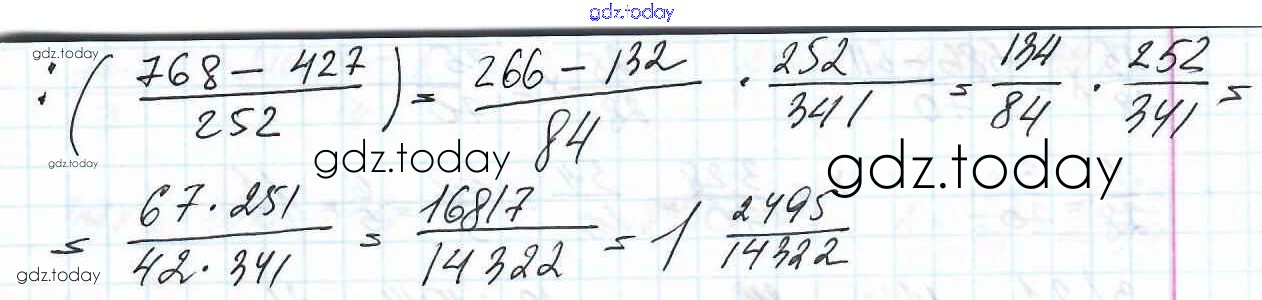 gdz.today
gdz.today
: ( (768 - 427) / 252 ) = (266 - 132) / 84 · 252 / 341 = 134 / 84 · 252 / 341 =
gdz.today gdz.today gdz.today
= (67 · 251) / (42 · 341) = 16817 / 14322 = 1 2495 / 14322
gdz.today